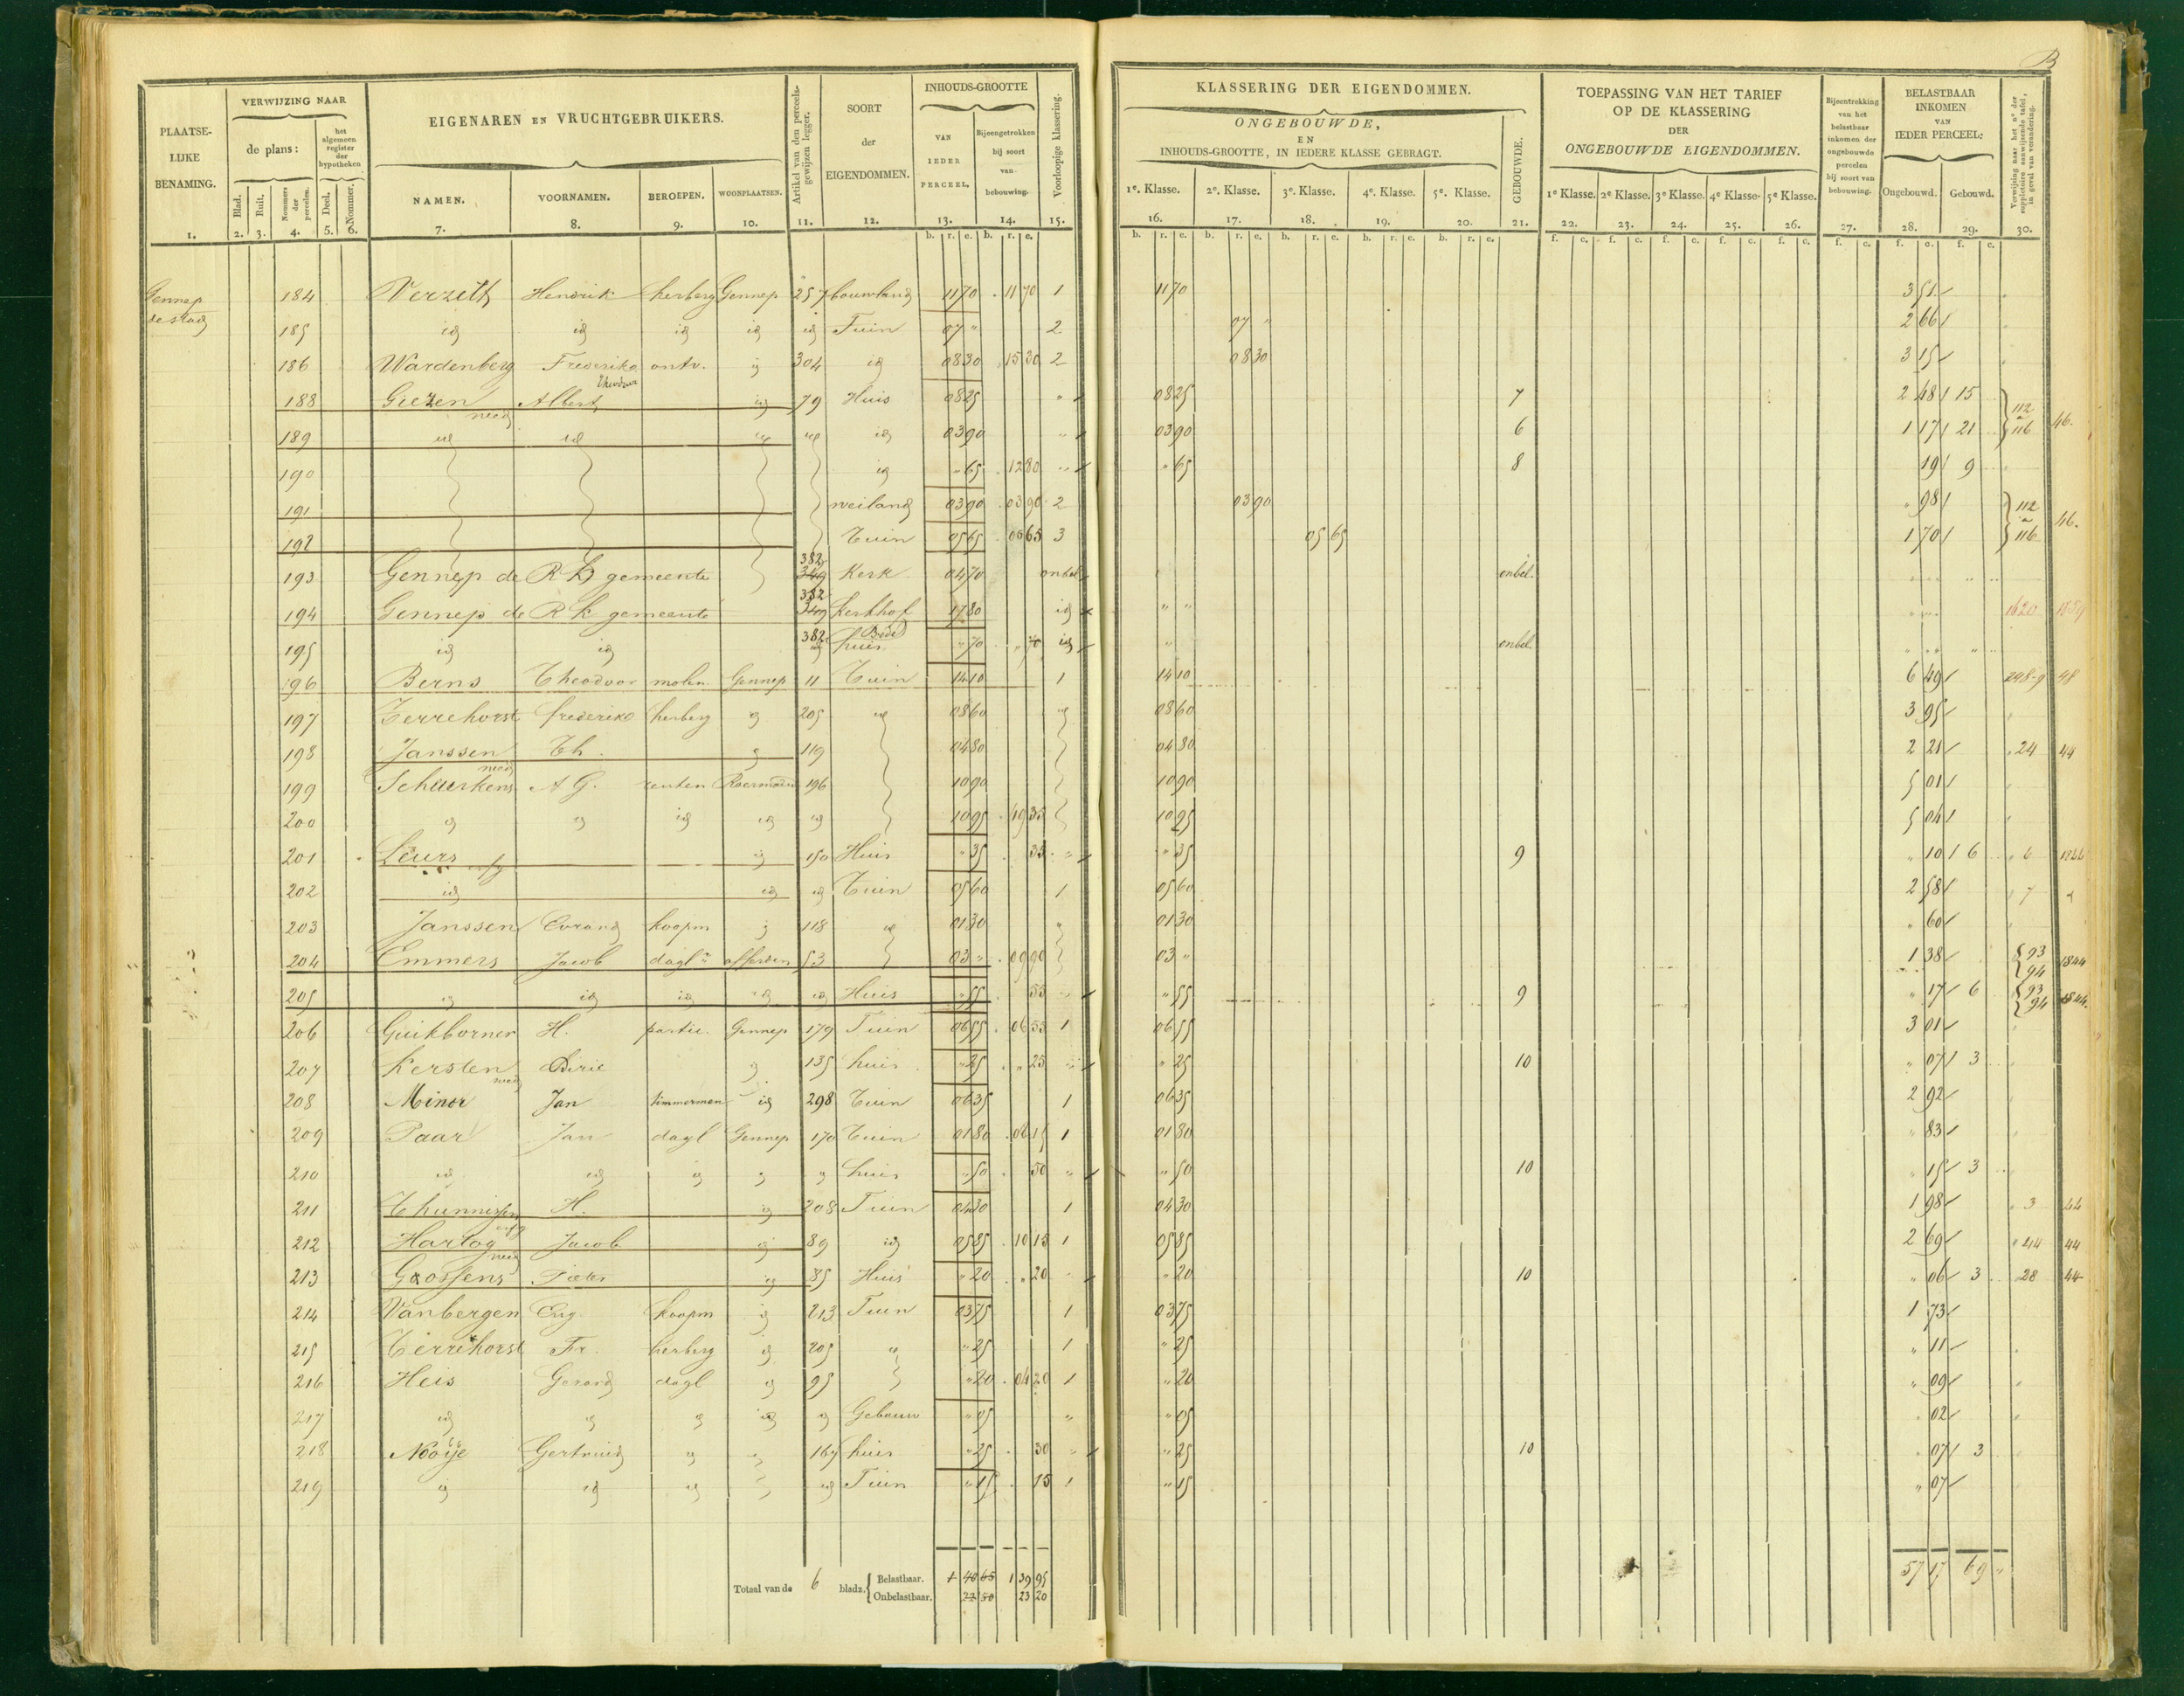 B
PLAATSE-
LIJKE
BENAMING.
VERWIJZING NAAR
de plans:
het
algemeen
register
der
hypotheken
Blad.
Ruit.
Nommers
der
perceelen.
Deel.
Nommer.
EIGENAREN EN VRUCHTGEBRUIKERS.
NAMEN.
VOORNAMEN.
BEROEPEN.
WOONPLAATSEN.
Artikel van den perceels-
gewijzen legger.
SOORT
der
EIGENDOMMEN.
INHOUDS-GROOTTE
VAN
IEDER
PERCEEL.
Bijeengetrokken
bij soort
van
bebouwing.
Voorloopige klassering.
1. 2. 3. 4. 5. 6. 7. 8. 9. 10. 11. 12. 13. 14. 15.
b. r. e. b. r. e.
KLASSERING DER EIGENDOMMEN.
ONGEBOUWDE,
EN
INHOUDS-GROOTTE, IN IEDERE KLASSE GEBRAGT.
GEBOUWDE.
1e. Klasse. 2e. Klasse. 3e. Klasse. 4e. Klasse. 5e. Klasse.
16. 17. 18. 19. 20. 21.
b. r. e. b. r. e. b. r. e. b. r. e. b. r. e.
TOEPASSING VAN HET TARIEF
OP DE KLASSERING
DER
ONGEBOUWDE EIGENDOMMEN.
1e Klasse. 2e Klasse. 3e Klasse. 4e Klasse. 5e Klasse.
22. 23. 24. 25. 26.
f. c. f. c. f. c. f. c. f. c.
Bijeentrekking
van het
belastbaar
inkomen der
ongebouwde
perceelen
bij soort van
bebouwing.
27.
f. c.
BELASTBAAR
INKOMEN
VAN
IEDER PERCEEL:
Ongebouwd. Gebouwd.
28. 29.
f. c. f. c.
Verwijzing naar het no. der
suppletoire aanwijzende tafel,
in geval van verandering.
30.
Gennep
de stad
184 Verzett Hendrik herberg Gennep 257 bouwland 11 70 11 70 1 11 70 3 51
185 id id id id id Tuin 07 " 2 07 " 2 66
186 Wardenberg Frederika ontv. id 304 id 08 30 15 30 2 08 30 3 15
188 Giezen Albert Theodoor id 79 Huis 08 25 " 08 25 7 2 48 15 112 a 116 46.
189 id id id id id 03 90 " 03 90 6 1 17 21
190 id " 65 12 80 " " 65 8 19 9
191 weiland 03 90 03 90 2 03 90 " 98 112 a 116 46.
192 Tuin 05 65 05 65 3 05 65 1 70
193 Gennep de R K gemeente 382 349 Kerk 04 70 onbel. onbel.
194 Gennep de R K gemeente 382 349 kerkhof 17 80 id " " 1620 1859
195 id id 382 id huis " 70 " 70 id " onbel.
196 Berns Theodoor molen. Gennep 11 Tuin 14 10 1 14 10 6 49 248-9 48
197 Terrehorst frederiko herberg id 205 id 08 60 id 08 60 3 95
198 Janssen Th. id 119 04 80 04 80 2 21 24 44
199 Scheerkens A G. renten Roermond 196 10 90 10 90 5 01
200 id id id id id 10 95 49 35 10 95 5 04
201 Leurs id 150 Huis " 35 35 " " 35 9 " 10 6 6
202 id id id Tuin 05 60 1 05 60 2 58 7
203 Janssen Evrard koopm id 118 id 01 30 " 01 30 " 60
204 Emmers Jacob dagl afferden 53 03 " 09 90 03 " 1 38 93 94 1844
205 id id id id id Huis " 55 55 " " 55 9 " 17 6 93 94 1844.
206 Guikborner H. partic. Gennep 179 Tuin 06 55 06 55 1 06 55 3 01
207 Kersten Dirie id 135 huis " 25 " 25 " " 25 10 " 07 3
208 Minor Jan timmerman id 298 Tuin 06 35 1 06 35 2 92
209 Paar Jan dagl Gennep 170 Tuin 01 80 08 15 1 01 80 " 83
210 id id id id id huis " 50 50 " " 50 10 " 15 3
211 Thunnissen H. id 208 Tuin 04 30 1 04 30 1 98 3 44
212 Hartog Jacob id 89 id 05 85 10 15 1 05 85 2 69 44 44
213 Goossens Pieter id 85 Huis " 20 " 20 " " 20 10 " 06 3 28 44
214 Vanbergen Eug. koopm id 213 Tuin 03 75 1 03 75 1 73
215 Terrehorst Fr. herberg id 205 id " 25 1 " 25 " 11
216 Heis Gerard dagl id 95 " 20 04 20 1 " 20 " 09
217 id id id id id Gebouw " 05 " " 05 " 02
218 Nooije Gertruid id id 167 huis " 25 30 " " 25 10 " 07 3
219 id id id id Tuin " 15 15 1 " 15 " 07
Totaal van de 6 bladz.
Belastbaar. 1 48 65 1 39 95
Onbelastbaar. 22 50 23 20
57 17 69 "